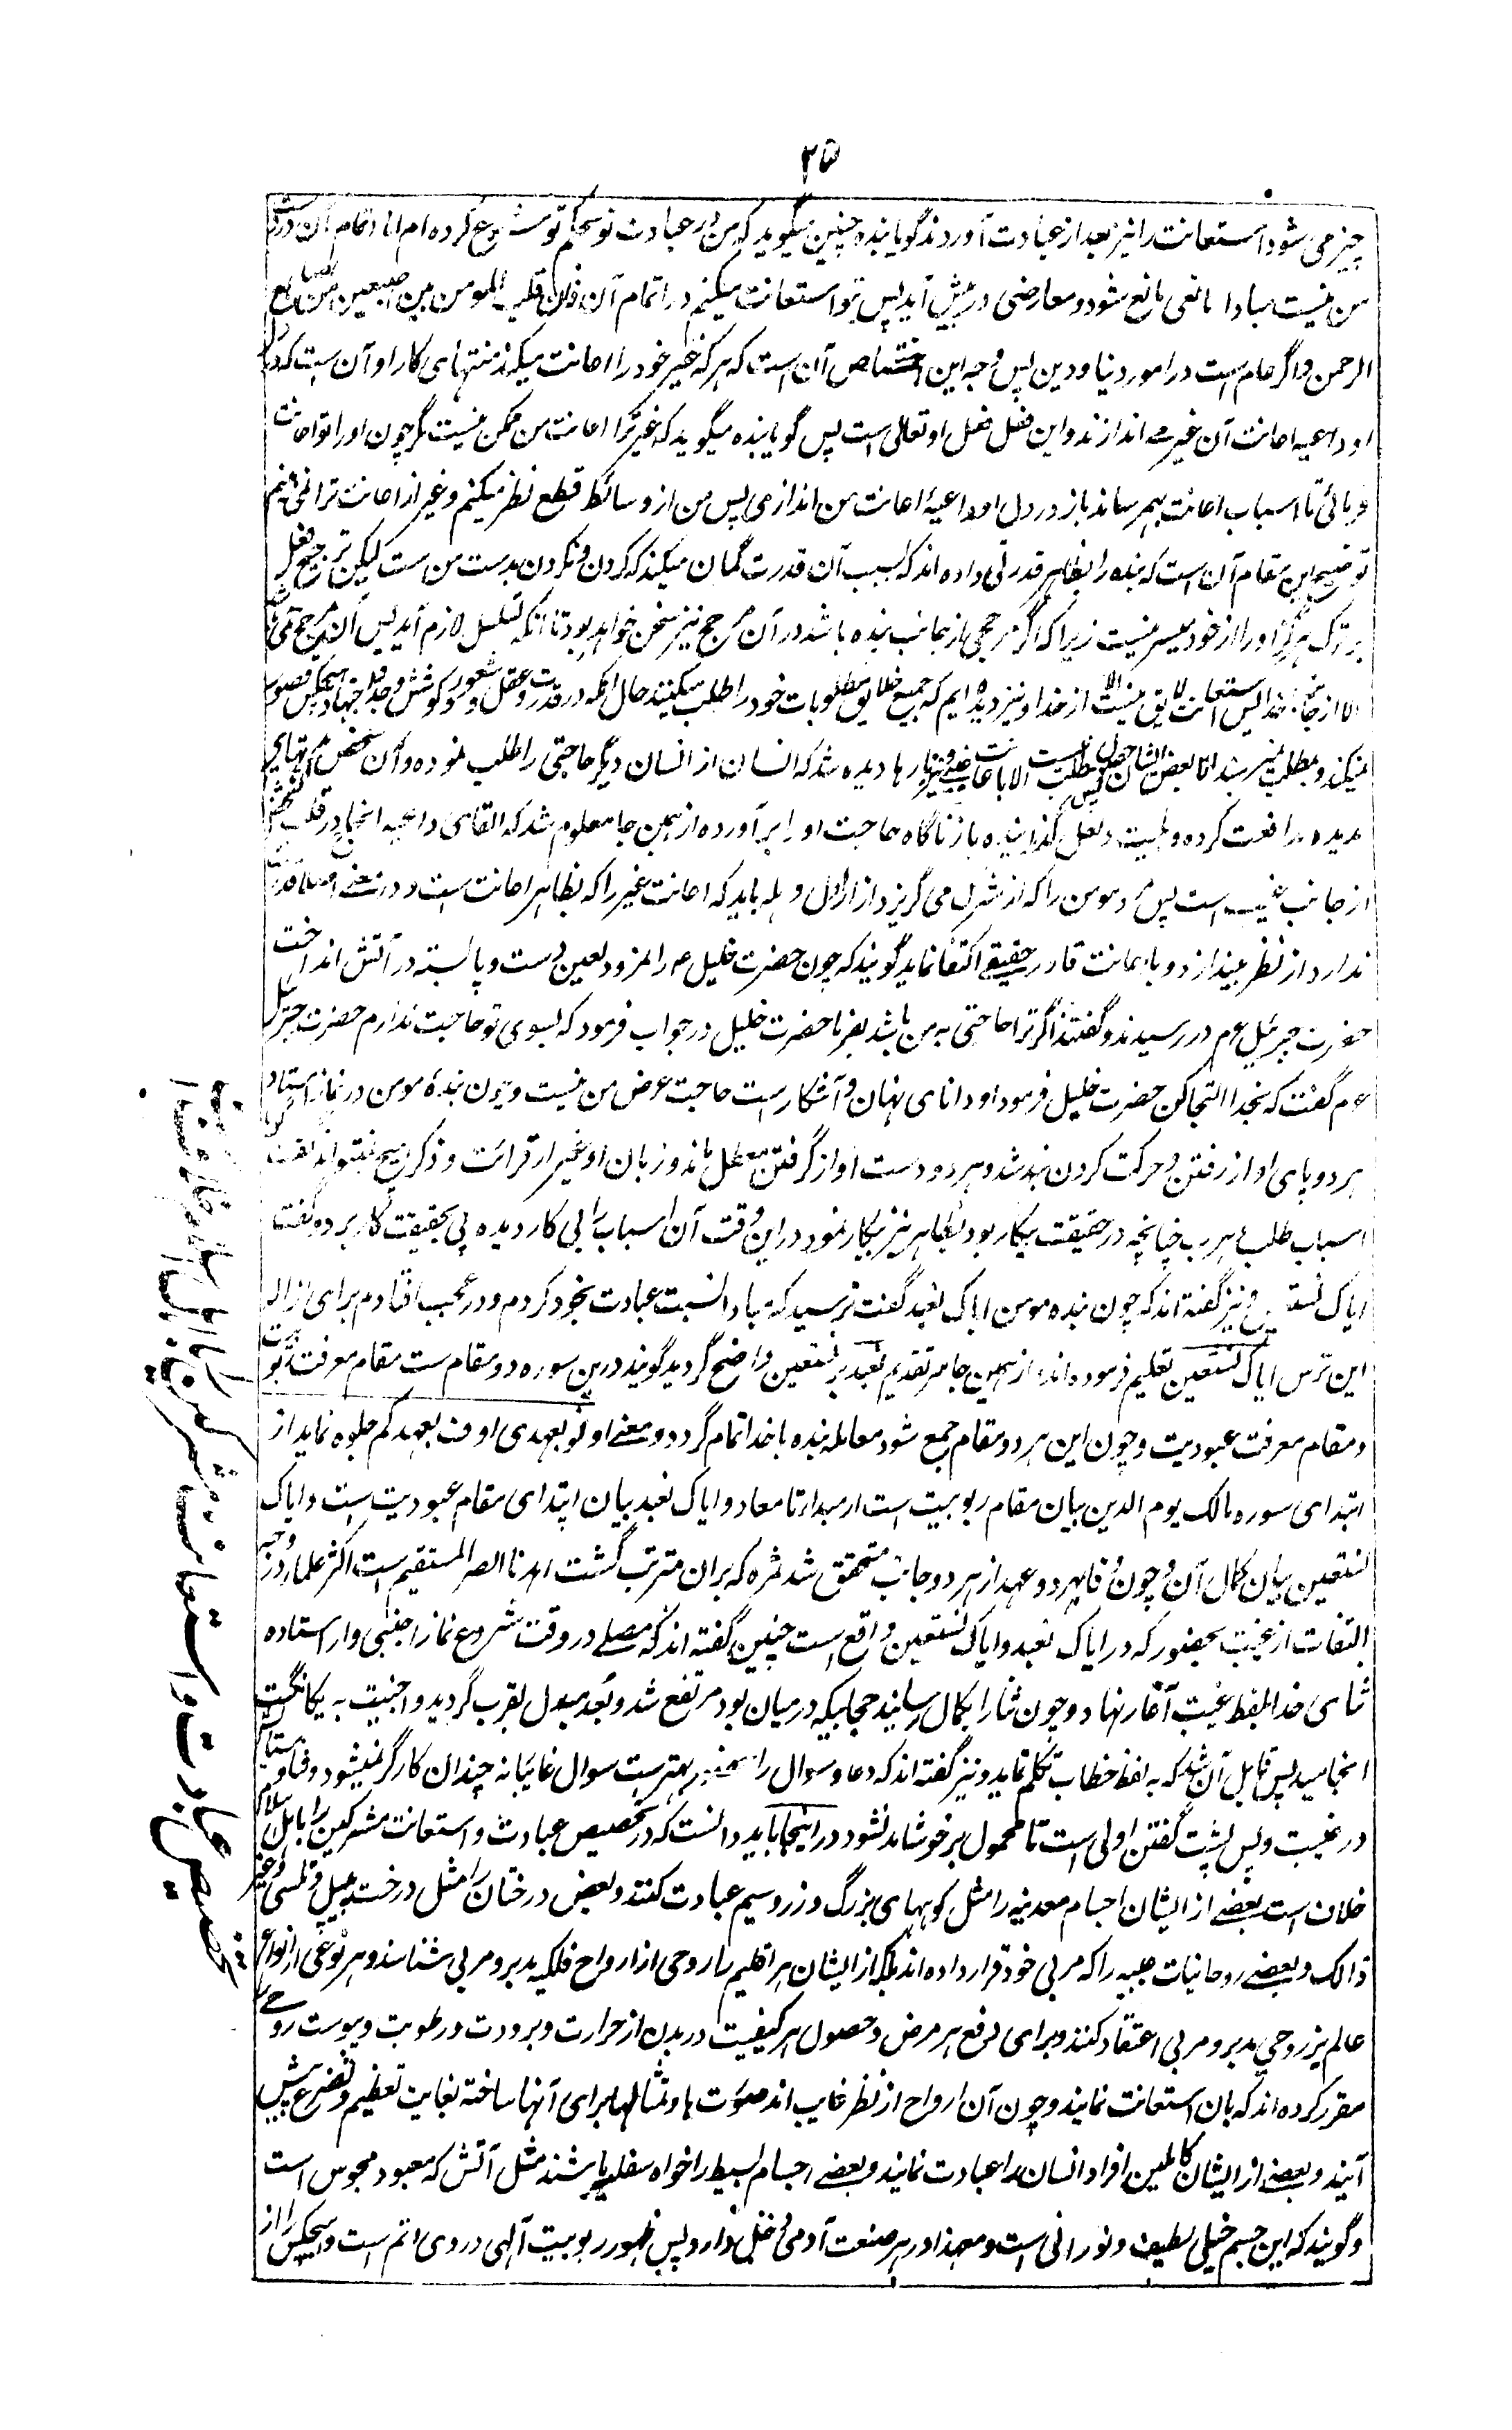 ۲۵
چیز می شود استعانت را نیز بعد از عبادت آوردند گویا بنده چنین میگوید که من در عبادت تو بحکم تو شروع کرده ام اما اتمام آن در دست
من نیست مبادا مانعی مانع شود و معارضی در پیش آید پس بتو استعانت میکنم در اتمام آن فان قلب المومن بین اصبعین من اصابع
الرحمن و اگر عام است در امور دنیا و دین پس وجه این اختصاص آن است که هر که غیر خود را اعانت میکند منتهای کار او آن ست که در دل
او داعیه اعانت آن غیر می اندازند و این فعل فعل او تعالی است پس گویا بنده میگوید که غیر ترا اعانت من ممکن نیست مگر چون او را تو اعانت
فرمائی تا اسباب اعانت بهم رساند باز در دل او داعیهٔ اعانت من اندازی پس من از وسائط قطع نظر میکنم و غیر از اعانت ترا نمی بینم
توضیح این مقام آن است که بنده را بظاهر قدرتی داده اند که بسبب آن قدرت گمان میکند که کردن و نکردن بدست من ست لیکن ترجیح فعل
بر ترک هرگز او را از خود میسر نیست زیرا که اگر مرجحی از جانب بنده باشد در آن مرجح نیز سخن خواهد بود تا آنکه تسلسل لازم آید پس آن مرجح نمی باشد
الا از جانب خدا پس استعانت لایق نیست الا از خدا و نیز دیده ایم که جمیع خلایق مطلوبات خود را طلب میکنند حال آنکه در قدرت و عقل و شعور و کوشش و جد و جهد هیچکس قصور
نمیکند و بمطلب نمیرسد الا بعض ایشان پس حصول مطلب نیست الا باعانت غیبی و نیز بارها دیده شد که انسان از انسان دیگر حاجتی را طلب نموده و آن شخص مدتهای
مدیده مدافعت کرده و بلیت و لعل گذرانیده باز ناگاه حاجت او را بر آورده از همین جا معلوم شد که القای داعیه انجاح در قلب آن شخص
از جانب غیب است پس مرد مومن را که از شرک می گریزد از اول وهله باید که اعانت غیر را که بظاهر اعانت ست و در معنی اصلا قدرت
ندارد از نظر بیندازد و باعانت قادر حقیقی اکتفا نماید گویند که چون حضرت خلیل ع م را نمرود لعین دست و پا بسته در آتش انداخت
حضرت جبرئیل ع م در رسیدند و گفتند اگر ترا حاجتی بمن باشد بفرما حضرت خلیل در جواب فرمود که بسوی تو حاجت ندارم حضرت جبرئیل
ع م گفت که بخدا التجا کن حضرت خلیل فرمود او دانای نهان و آشکار ست حاجت عرض من نیست و چون بندهٔ مومن در نماز استاد گویا
هر دو پای او از رفتن و حرکت کردن بند شد و هر دو دست او از گرفتن معطل ماند و زبان او غیر از قرائت و ذکر هیچ نمیتواند گفت
اسباب طلب و هرب چنانچه در حقیقت بیکار بود بظاهر نیز بیکار نمود در این وقت آن اسباب را بی کار دیده پی بحقیقت کار برده گفت
ایاک نستعین و نیز گفته اند که چون بنده مومن ایاک نعبد گفت ترسید که مبادا نسبت عبادت بخود کردم و در عجب افتادم برای ازالهٔ
این ترس ایاک نستعین تعلیم فرموده اند از همین جا سر تقدیم نعبد بر نستعین واضح گردید گویند درین سوره دو مقام ست مقام معرفت ربوبیت
و مقام معرفت عبودیت و چون این هر دو مقام جمع شود معامله بنده با خدا تمام گردد و معنی اوفوا بعهدی اوف بعهدکم جلوه نماید از
ابتدای سوره مالک یوم الدین بیان مقام ربوبیت است از مبدا تا معاد و ایاک نعبد بیان ابتدای مقام عبودیت است و ایاک
نستعین بیان کمال آن و چون وفا بهر دو عهد از هر دو جانب متحقق شد ثمره که بران مترتب گشت اهدنا الصراط المستقیم ست اکثر علما در وجه
التفات از غیبت بحضور که در ایاک نعبد و ایاک نستعین واقع است چنین گفته اند که مصلی در وقت شروع نماز اجنبی وار استاده
ثنای خدا بلفظ غیبت آغاز نهاد و چون ثنا را بکمال رسانید حجابیکه درمیان بود مرتفع شد و بعد مبدل بقرب گردید و اجنبیت به یگانگت
انجامید پس قابل آن شد که به لفظ خطاب تکلم نماید و نیز گفته اند که دعا و سوال را بحضور بهتر ست سوال غائبانه چندان کارگر نمیشود و ثنا و ستایش
در غیبت و پس پشت گفتن اولی است تا محمول بر خوشامد نشود در اینجا باید دانست که در تخصیص عبادت و استعانت مشرکین را با اهل اسلام
خلاف است بعضی از ایشان اجسام معدنیه را مثل کوههای بزرگ و زر و سیم عبادت کنند و بعض درختان را مثل درخت پیپل و تلسی و غیر
ذالک و بعضی روحانیات غیبیه را که مربی خود قرار داده اند بلکه از ایشان هر اقلیم را روحی از ارواح فلکیه مدبر و مربی شناسند و هر نوعی از انواع
عالم نیز روحی مدبر و مربی اعتقاد کنند و برای دفع هر مرض و حصول هر کیفیت در بدن از حرارت و برودت و رطوبت و یبوست روحی را
مقرر کرده اند که بآن استعانت نمایند و چون آن ارواح از نظر غایب اند صورت ها و تمثالها برای آنها ساخته بغایت تعظیم و تضرع پیش
آیند و بعضی از ایشان کاملین افراد انسان را عبادت نمایند و بعضی اجسام بسیط را خواه سفلیه باشند مثل آتش که معبود مجوس است
و گویند که این جسم خیلی لطیف و نورانی است و معهذا در هر صنعت آدمی دخل دارد پس ظهور ربوبیت آلهی در وی اتم است و هیچکس را از
تخصیص عبادت و استعانت مشرکین با اهل اسلام خلاف است